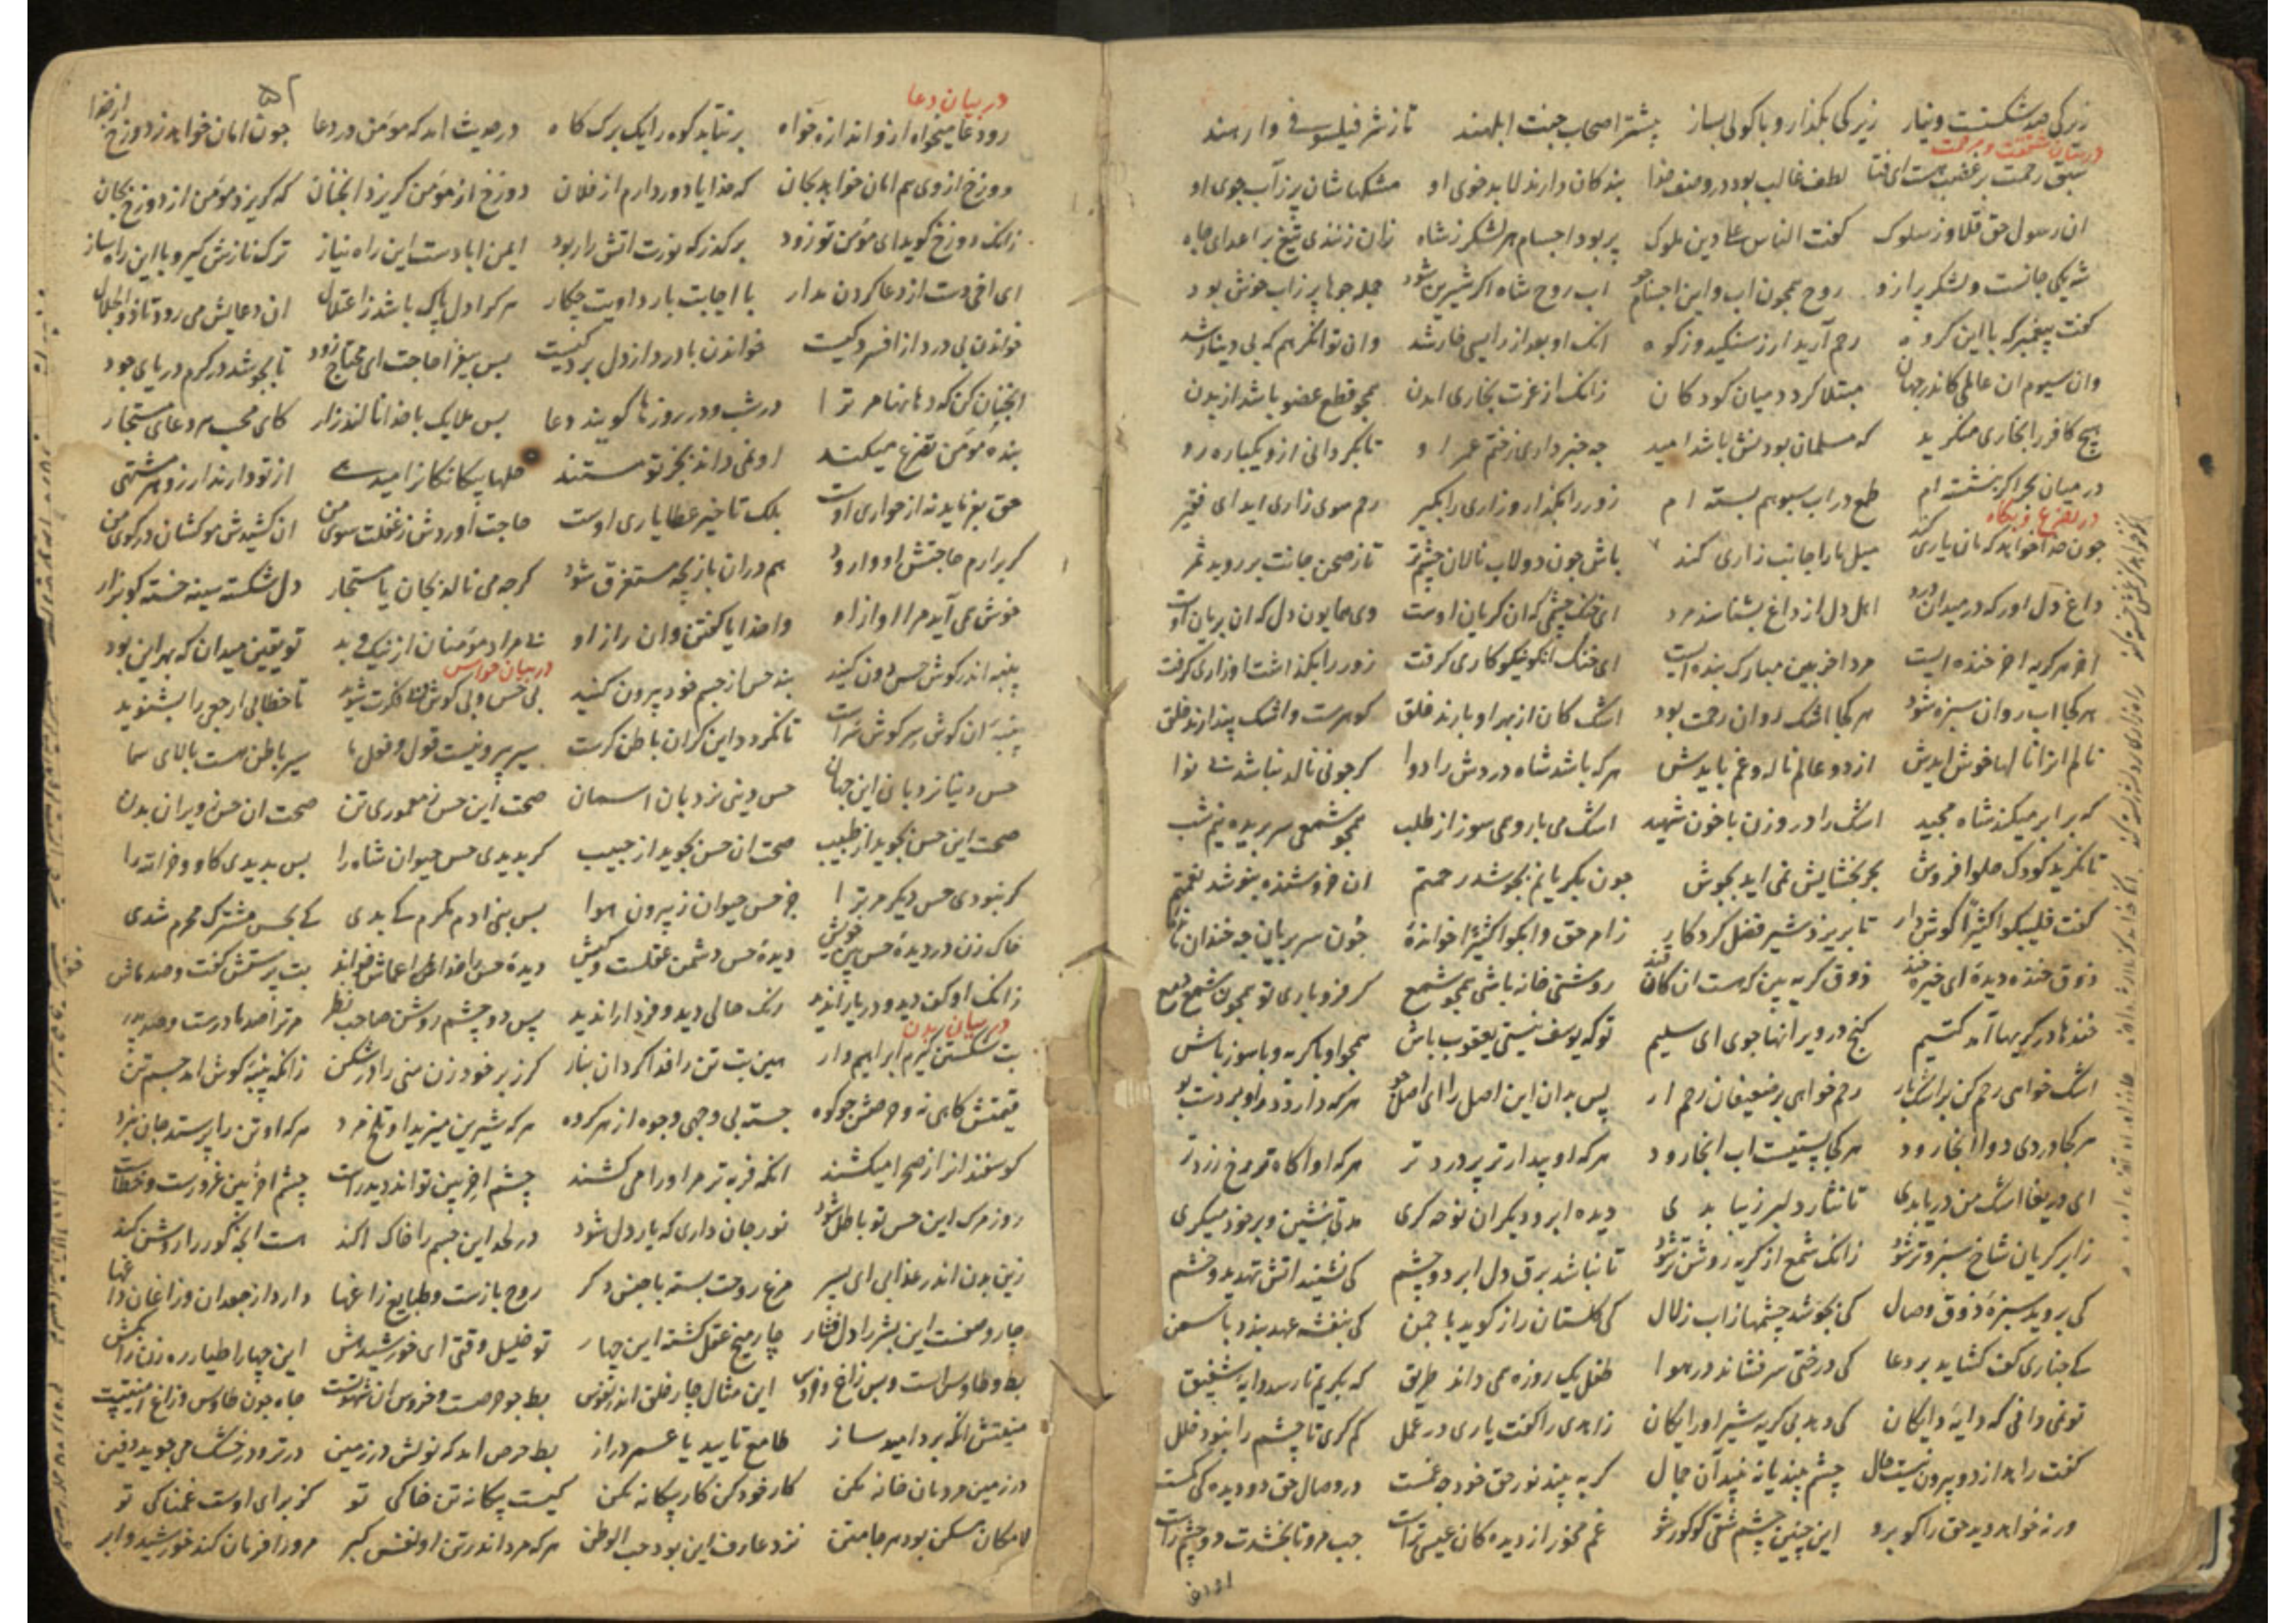 زیرکی ضد شکستست و نیاز زیرکی بگذار و با کولی بساز بیشتر اصحاب جنت ابلهند تا ز شر فیلسوفی وارهند
در بیان شفقت و مرحمت
سبق رحمت بر غضب هست ای فتا لطف غالب بود در وصف خدا بندکان دارند لابد خوی او مشکهاشان پر ز آب جوی او
ان رسول حق قلاوز سلوک کفت الناس علی دین ملوک پر بود اجسام هر لشکر ز شاه زان زنندی تیغ بر اعدای جاه
شه یکی جانست و لشکر پر ازو روح همچون اب و این اجسام جو اب روح شاه اکر شیرین شود جمله جوها پر ز اب خوش بود
کفت پیغمبر که با این کروه رحم آرید ار ز سنکید و ز کوه انک او بعد از رئیسی خار شد وان توانکر هم که بی دینار شد
وان سیوم ان عالمی کاندر جهان مبتلا کردد میان کودکان زانک از عزت بخاری امدن همچو قطع عضو باشد از بدن
هیچ کافر را بخاری منکرید که مسلمان بودنش باشد امید چه خبر داری ز ختم عمر او تا بکردانی ازو یکباره رو
در میان بحر اکر بنشسته ام طمع در اب سبو هم بسته ام زور را بکذار و زاری را بکیر رحم سوی زاری اید ای فقیر
در تضرع و بکاء
چون خدا خواهد که مان یاری کند میل مارا جانب زاری کند باش چون دولاب نالان چشم تر تا ز صحن جانت بر روید خضر
داغ دل اور که در میدان درد اهل دل از داغ بشناسند مرد ای خنک چشمی که ان کریان اوست وی همایون دل که ان بریان اوست
اخر هر کریه اخر خنده ایست مرد اخر بین مبارک بنده ایست ای خنک انکو نیکوکاری کرفت زور را بکذاشت او زاری کرفت
هر کجا اب روان سبزه شود هر کجا اشک روان رحمت بود اشک کان از بهر او بارند خلق کوهرست و اشک پندارند خلق
نالم ایرا نالها خوش ایدش از دو عالم ناله و غم بایدش هر که باشد شاه دردش را دوا کر چو نی نالد نباشد بی نوا
که برابر میکند شاه مجید اشک را در وزن با خون شهید اشک می بار و همی سوز از طلب همچو شمعی سر بریده نیم شب
تا نکرید کودک حلوا فروش بحر بخشایش نمی اید بجوش چون بکریانم بجوشد رحمتم ان خروشنده بنوشد نعمتم
کفت فلیبکوا کثیرا گوش دار تا بریزد شیر فضل کردکار ز امر حق وابکوا کثیرا خوانده چون سر بریان چه خندان مانده
ذوق خنده دیده ای خیره خند ذوق کریه بین که هست ان کان قند روشنی خانه باشی همچو شمع کر فرو باری تو همچون شمع دمع
خنده ها در کریها آمد کتیم کنج در ویرانها جوی ای سلیم تو که یوسف نیستی یعقوب باش همچو او با کریه و با سوز باش
اشک خواهی رحم کن بر اشک بار رحم خواهی بر ضعیفان رحم ار پس بدان این اصل را ای اصل جو هر که دارد درد او بردست بو
هر کجا دردی دوا انجا رود هر کجا پستیست اب انجا رود هر که او بیدارتر پر درد تر هر که او اکاه تر رخ زردتر
ای دریغا اشک من دریا بدی تا نثار دلبر زیبا بدی دیده ابر و دیکران نوحه کری مدتی بنشین و بر خود میکری
ز ابر کریان شاخ سبز و تر شود زانک شمع از کریه روشن تر شود تا نباشد برق دل ابر دو چشم کی نشیند اتش تهدید و خشم
کی بروید سبزه ذوق وصال کی بجوشد چشمها ز اب زلال کی کلستان راز کوید با چمن کی بنفشه عهد بندد با سمن
کی چناری کف کشاید بر دعا کی درختی سر فشاند در هوا طفل یک روزه همی داند طریق که بکریم تا رسد دایه شفیق
تو نمی دانی که دایه دایکان کی دهد بی کریه شیر او رایکان زاهدی را کفت یاری در عمل کم کری تا چشم را نبود خلل
کفت زاهد از دو بیرون نیست حال چشم بیند یا نه بیند آن جمال کر به بیند نور حق خود چه غمست در وصال حق دو دیده کی کمست
ور نه خواهد دید حق را کو برو این چنین چشم شقی کو کور شو غم مخور از دیده کان عیسی تراست چپ مرو تا بخشدت دو چشم راست
۵۲
در بیان دعا
رو دعا میخواه ازو اندازه خواه بر نتابد کوه را یک برک کاه در حدیث امد که مومن در دعا چون امان خواهد ز دوزخ از خدا
دوزخ از وی هم امان خواهد بجان که خدایا دور دارم از فلان دوزخ از مومن کریزد انچنان که کریزد مومن از دوزخ بجان
زانک دوزخ کوید ای مومن تو زود بر کذر که نورت اتش را ربود ایمن ابادست این راه نیاز ترک نازش کیر و با این راه ساز
ای اخی دست از دعا کردن مدار با اجابت یا رد اویت چکار هر کرا دل پاک باشد ز اعتلال ان دعایش می رود تا ذوالجلال
خواندن بی درد از افسردکیست خواندن با درد از دل بردکیست پس بیفزا حاجت ای محتاج زود تا بجوشد در کرم دریای جود
انچنان کن که دهانها مر ترا در شب و در روزها کویند دعا پس ملایک با خدا نالند زار کای مجیب هر دعای مستجار
بنده مومن تضرع میکند او نمی داند بجز تو مستند عطا بیکانکان را میدهی از تو دارد ارزو هر مشتهی
حق بفرماید نه از خواری اوست بلک تاخیر عطا یاری اوست حاجت آوردش ز غفلت سوی من ان کشیدش مو کشان در کوی من
کر برارم حاجتش او وا رود هم دران بازیچه مستغرق شود کرچه می نالد بجان یا مستجار دل شکسته سینه خسته کو بزار
خوش همی آید مرا اواز او وا خدایا کفتن وان راز او بی مراد مومنان از نیک و بد تو یقین میدان که بهر این بود
در بیان حواس
پنبه اندر کوش حس دون کنید بند حس از چشم خود بیرون کنید بی حس و بی کوش و بی فکرت شوید تا خطاب ارجعی را بشنوید
پنبه آن کوش سر کوش سرست تا نکردد این کر آن باطن کرست سیر بیرونیست قول و فعل ما سیر باطن هست بالای سما
حس دنیا نردبان این جهان حس دینی نردبان اسمان صحت این حس ز معموری تن صحت ان حس ز ویران بدن
صحت این حس بجوید از طبیب صحت ان حس بجوید از حبیب کر بدیدی حس حیوان شاه را پس بدیدی کاو و خر الله را
کر نبودی حس دیکر مر ترا جز حس حیوان ز بیرون هوا پس بنی ادم مکرم کی بدی کی بحس مشترک محرم شدی
خاک زن در دیده حس بین خویش دیده حس دشمن عقلست و کیش دیده حس را خدا اعماش خواند بت پرستش کفت و ضد ماش
زانک او کف دید و دریا را ندید زانک حالی دید و فردا را ندید پس دو چشم روشن صاحب نظر مر ترا صد مادرست و صد پدر
در بیان بدن
بت شکستن کیرم ابراهیم وار همین بت تن را فدا کردن بنار کرز بر خود زن منی را در شکن زانکه پنبه کوش امد چشم تن
قیمتش کاهی نه و حرصش چو کوه جسته بی وجهی وجوه از هر کروه هر که شیرین میزید او تلخ مرد هر که او تن را پرستد جان نبرد
کوسفندانرا ز صحرا میکشند انکه فربه تر مر اورا می کشند چشم اخر بین تواند دید راست چشم اخر بین غرورست و خطاست
روز مرک این حس تو باطل شود نور جان داری که یار دل شود در لحد این چشم را خاک اکند هست انچه کور را روشن کند
زین بدن اندر عذابی ای پسر مرغ روحت بسته با جنس دکر روح بازست و طبایع زاغها دارد از جغدان و زاغان داغها
چار وصفست این بشر را دل فشار چار میخ عقل کشته این چهار تو خلیل وقتی ای خورشید هش این چهار اطیار ره زن را بکش
بط و طاوس است و پس زاغ و خروس این مثال چار خلق اندر نفوس بط چو حرصست و خروس ان شهوتست جاه چون طاوس و زاغ امنیتست
منیتش انکه برد امید ساز طامع تایید یا عمر دراز بط حرص امد که نولش در زمین در تر و در خشک می جوید دفین
در زمین مردمان خانه مکن کار خود کن کار بیکانه مکن کیست بیکانه تن خاکی تو کز برای اوست غمناکی تو
لامکان مسکن بود هر جا متن نزد عارف این بود حب الوطن هر که مرد اندر تن او نفس کبر مر ورا فرمان کند خورشید و ابر